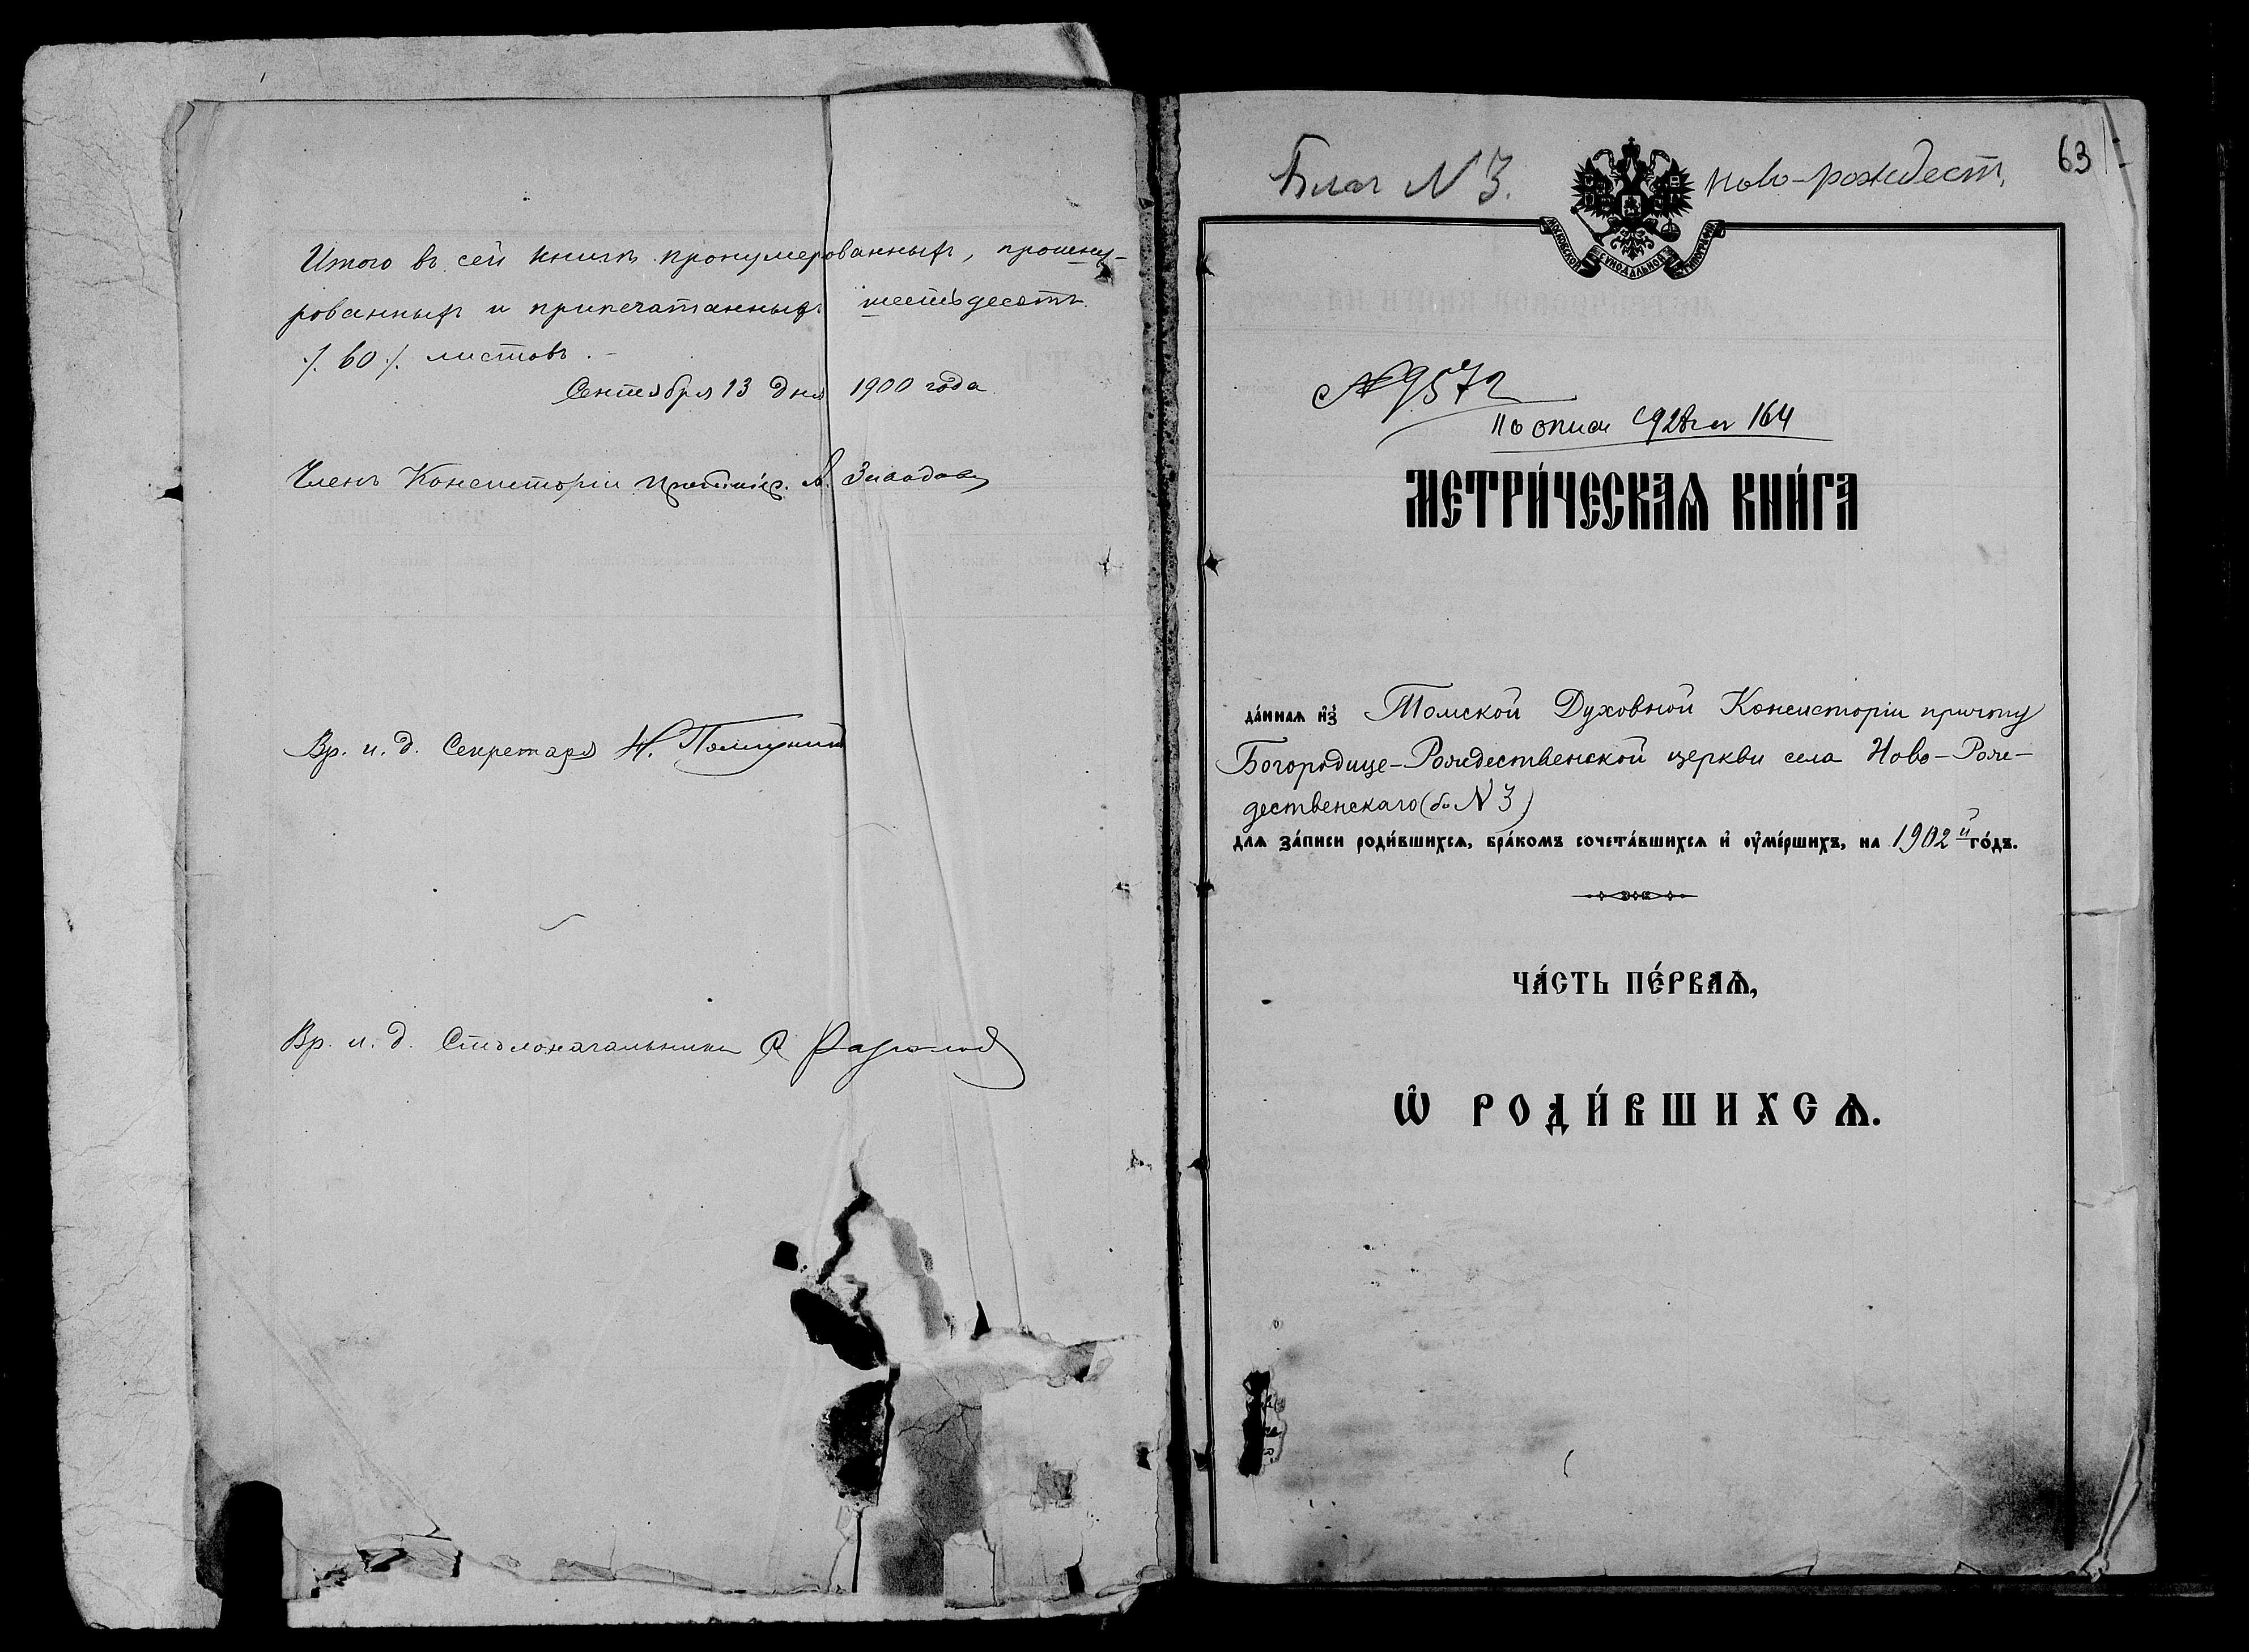 Итого въ сей книгѣ пронумерованныхъ, прошну-
рованныхъ и припечатанныхъ шестьдесятъ
·/. 60 ·/. листовъ. –
Сентября 13 дня 1900 года
Членъ Консисторіи А.
Вр. и. д. Секретаря Н.
Вр. и. д. Столоначальника
Благ N 3.
Ново-рождест.
63
МОСКОВСКОЙ СѴНОДАЛЬНОЙ ТИПОГРАФІИ
№ 9572
По описи 1928 г. № 164
МЕТРИ́ЧЕСКАѦ КНИ́ГА
да́ннаѧ и҆з̾ Томской Духовной Консисторіи причту
Богородице-Рождественской церкви села Ново-Рож-
дественскаго (бл. N 3)
длѧ за́писи роди́вшихсѧ, бра́комъ сочета́вшихсѧ и҆ ᲂу҆ме́ршихъ, на 1902 й го́дъ.
ЧА́СТЬ ПЕ́РВАѦ,
Ѽ РОДИ́ВШИХСѦ.